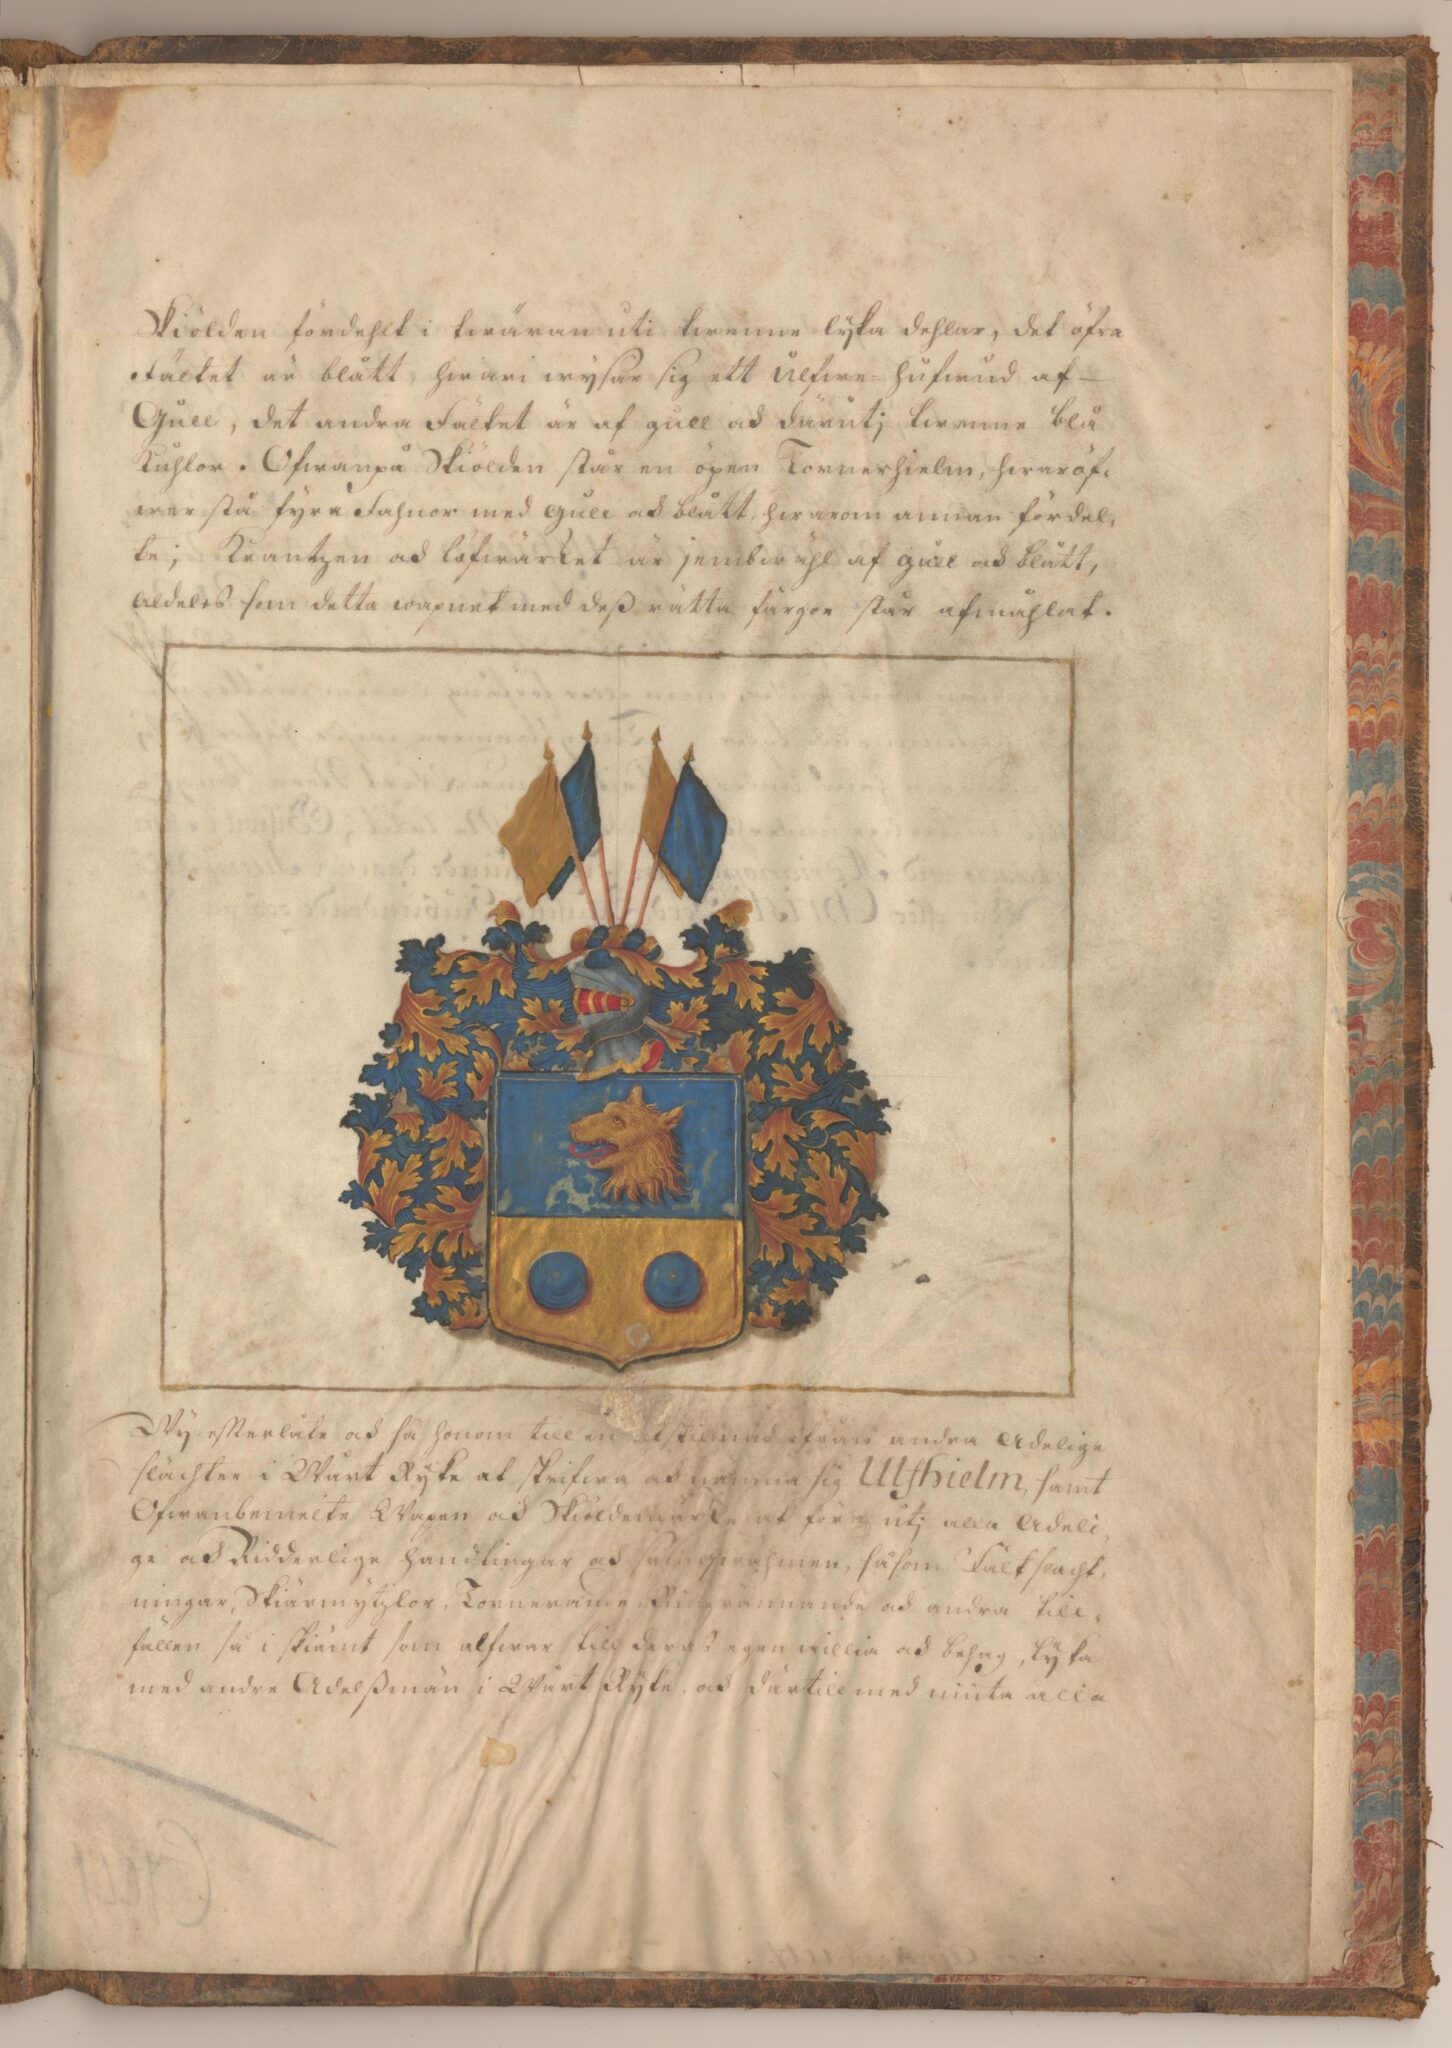 Skiölden fördehlt i twäran uti twenne lyka dehlar, det öfra
Fältet är blått, hwari wysar sig ett Ulfwe-hufwud af
Gull, det andra Fältet är af gull och därutj twenne blå
Kuhlor. Ofwanpå Skiölden står en öpen Tornerhielm, hwaröf-
wer stå fyra Fahnor med gull och blått, hwarom annan fördel-
te; Krantzen och löfwärket är jembwähl af gull och blått,
aldeles som detta wapnet med deß rätta färgor står afmåhlat.
Wy efterlåte och så honom till en åtskilnad ifrån andra Adelige
slächter i Wårt Ryke at skrifwa och nämna sig Ulfhielm, samt
Ofwanbemelte Wapen och Skiöldemärke at föra utj alla Adeli-
ge och Ridderlige handlingar och, såsom Fältslacht-
ningar, Skiärmytzlor, Ringrännande och andra till-
fällen så i skiämt som alfwar till deras egen willia och behag, lyka
med andre Adelßmän i Wårt Ryke, och därtill med niuta alla